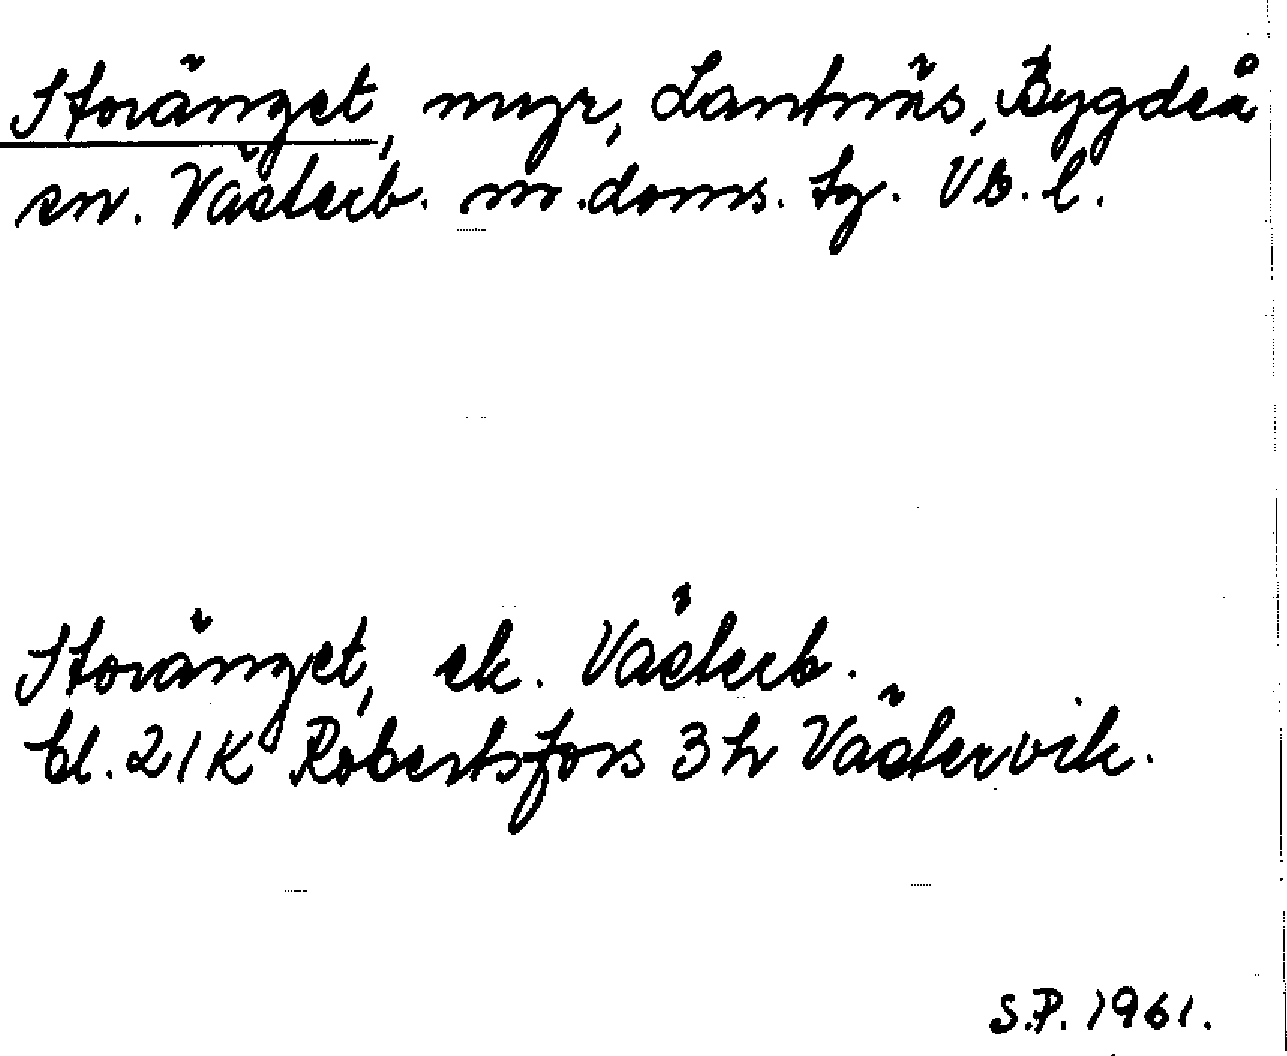 Storänget, myr, Lantnäs, Bygdeå
sn. Västerb. n. doms. tg. VB. l.
Storänget, ek. Västerb.
bl. 21K Robertsfors 3 h Västervik.
S.P. 1961.